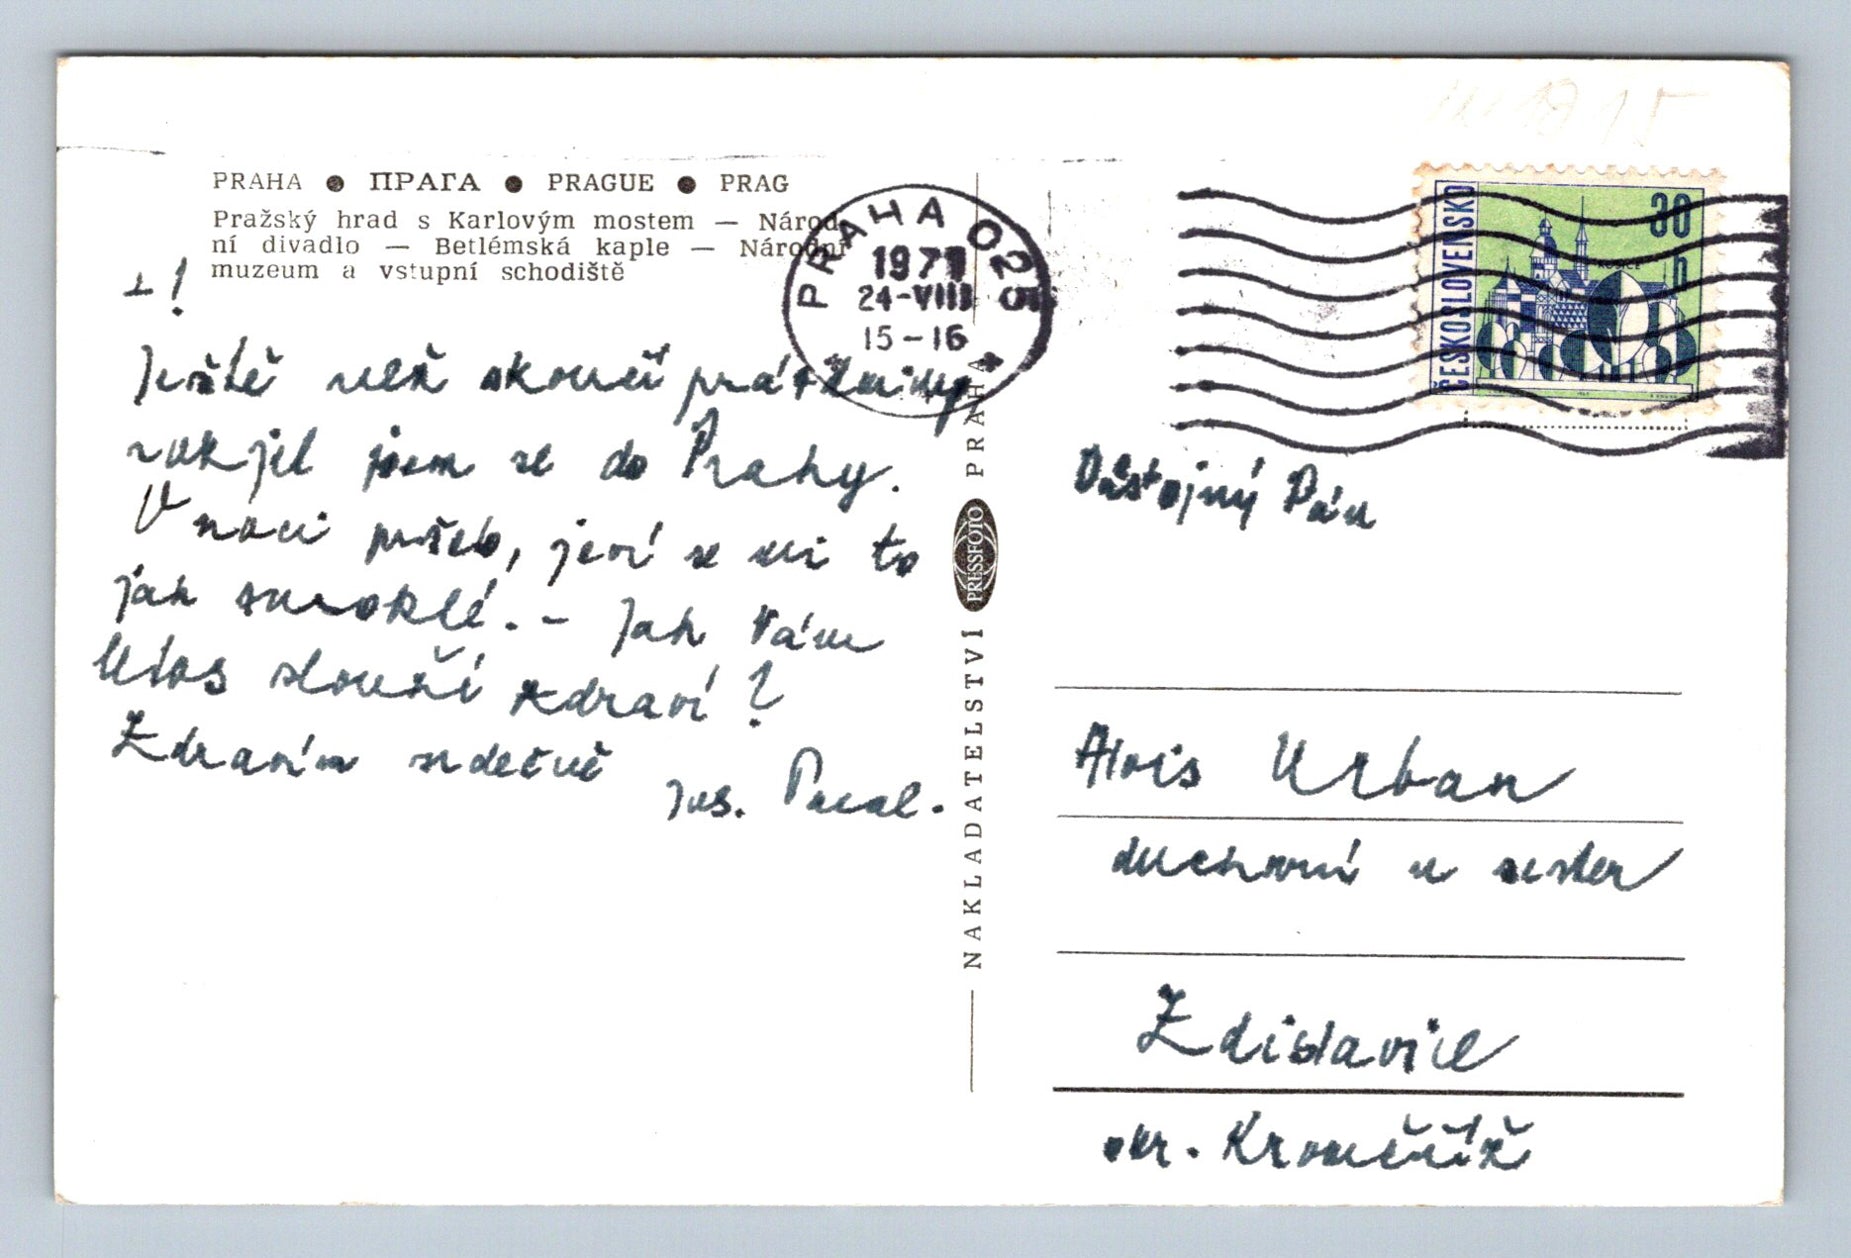 PRAHA ● ПРАГА ● PRAGUE ● PRAG
Pražský hrad s Karlovým mostem — Národ-
ní divadlo — Betlémská kaple — Národní
muzeum a vstupní schodiště
+!
Ještě než skončí prázdniny
zakjel jsem se do Prahy.
V noci pršelo, jeví se mi to
jak zmoklé. – Jak Vám
léios slouží zdraví?
Zdravím srdečně
Jos.
NAKLADATELSTVÍ PRESSFOTO PRAHA
PRAHA 025
24-VIII
15-16
ČESKOSLOVENSKO
30 h
Důstojný Pán
Alois Urban
duchovní u sester
Zdislavice
okr. Kroměříž